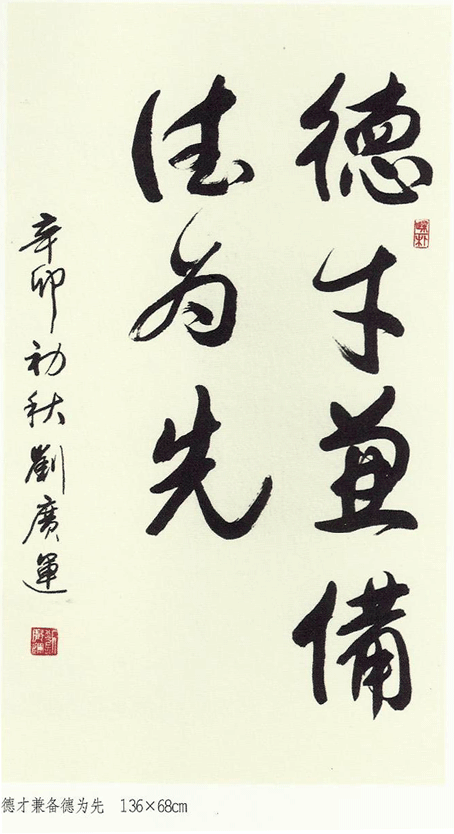 德才兼備
德为先
辛卯初秋劉廣運
德才兼备德为先 136×68cm